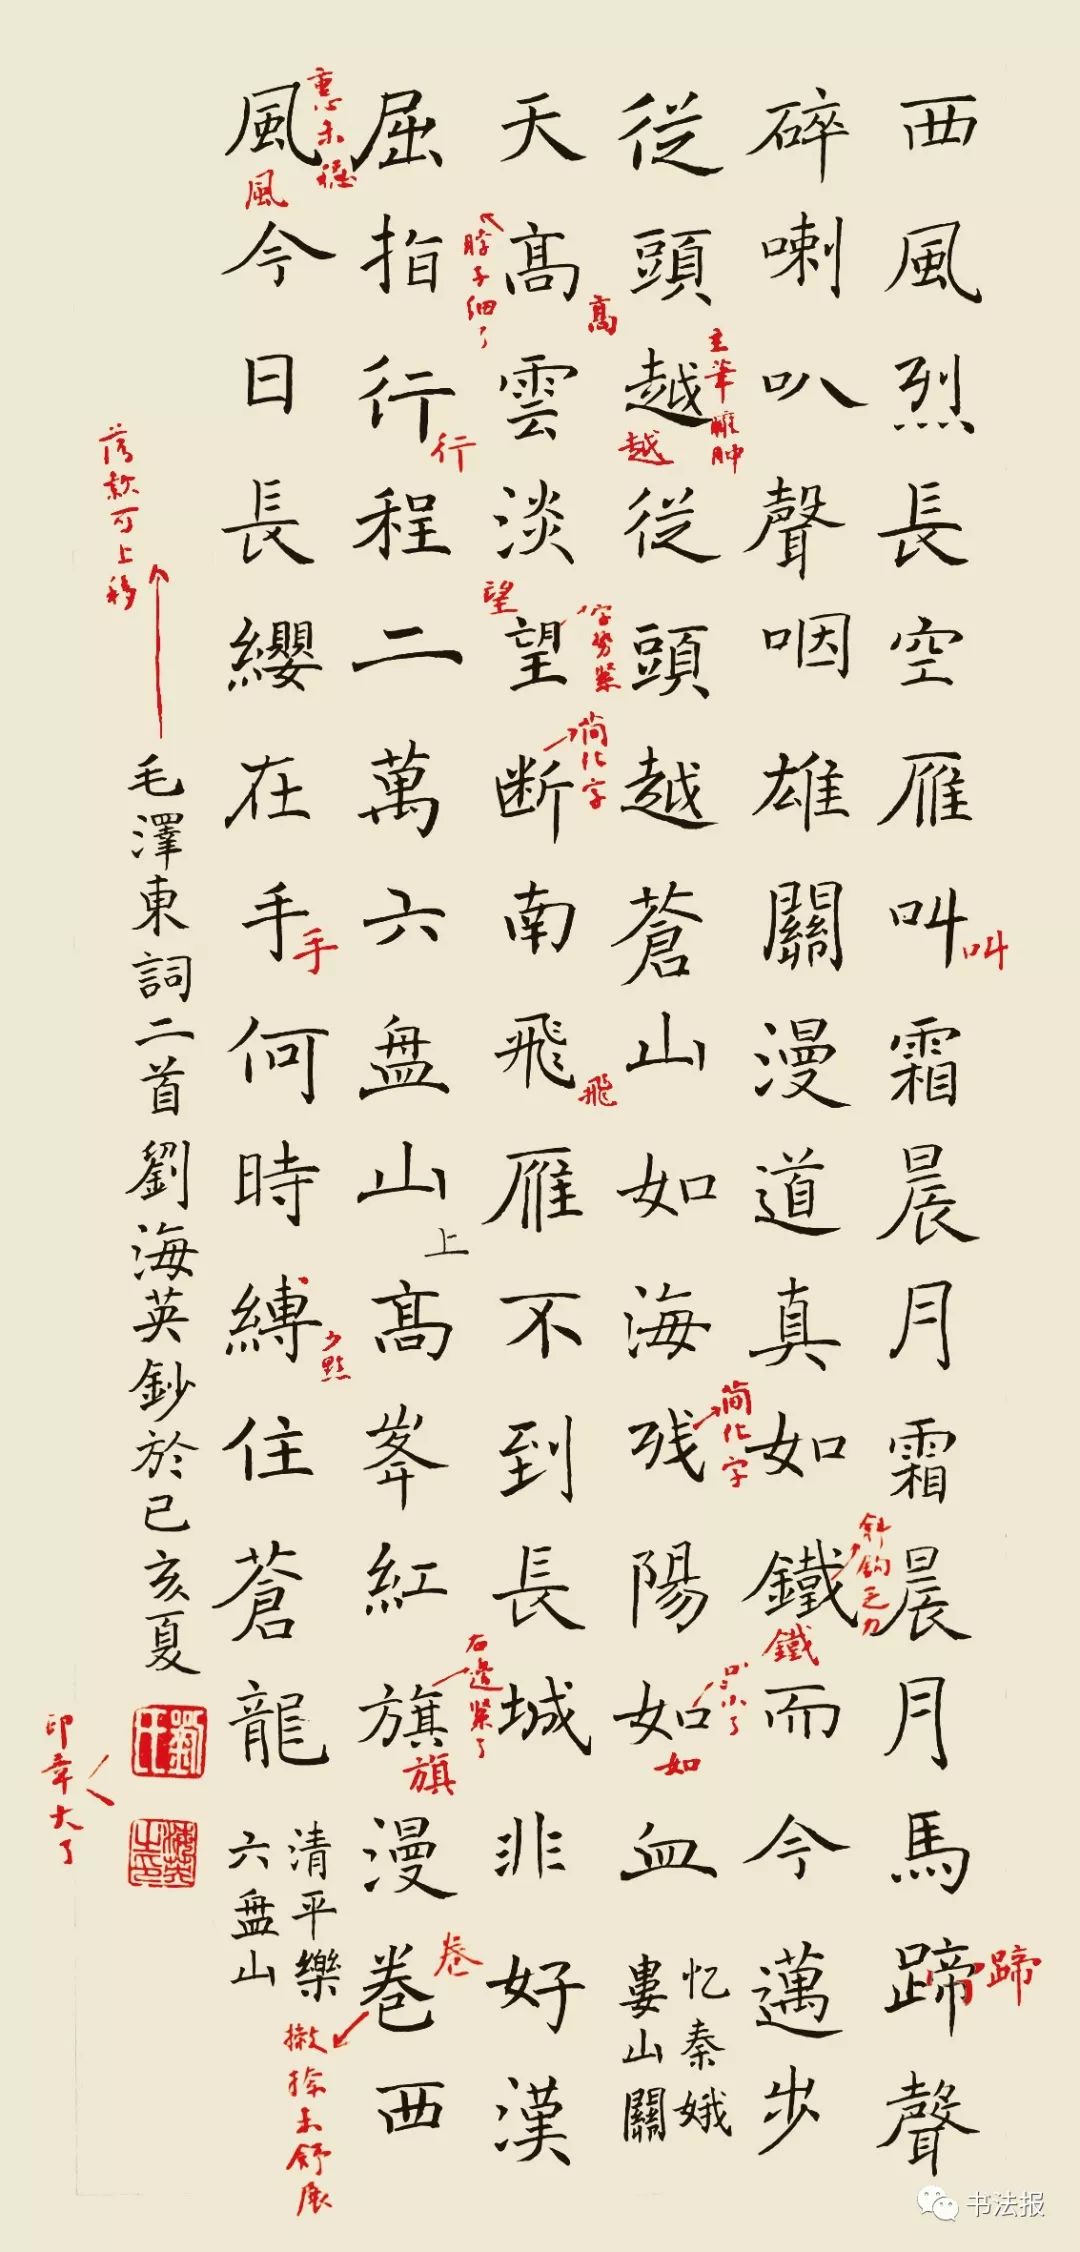 西風烈長空雁叫霜晨月霜晨月馬蹄聲
碎喇叭聲咽雄關漫道真如鐵而今邁步
從頭越從頭越蒼山如海残陽如血
忆秦娥
婁山關
天高雲淡望断南飛雁不到長城非好漢
屈指行程二萬六盘山上高峯紅旗漫卷西
風今日長纓在手何時縛住蒼龍
清平樂
六盘山
毛澤東詞二首劉海英鈔於已亥夏
叫
蹄
斜鉤乏力
鐵
主筆臃肿
越
简化字
口小了
如
高
脖子細了
望
字势紧
简化字
飛
行
右邊紧了
旗
卷
撇捺未舒展
重心未穩
風
手
少點
落款可上移
印章大了
書法报